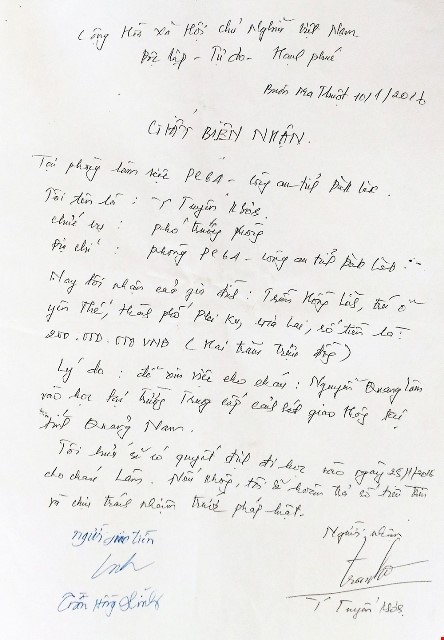 Cộng Hòa xã Hội chủ Nghĩa Việt Nam
Độc lập - Tự do - Hạnh phúc
Buôn Ma Thuột 10/1/2016
GIẤY BIÊN NHẬN.
Tại phòng làm việc PC61 - công an tỉnh Đăk Lăk.
Tôi tên là : Tuyên
chức vụ : phó trưởng phòng
Địa chỉ : phòng PC61 - công an tỉnh Đăk Lăk
Nay tôi nhận của gia đình : Trần Hồng trú ở
yên Thế, thành phố Gia Lai, số tiền là:
250.000.000 VNĐ ( Hai trăm triệu đồng )
Lý do : để xin việc cho cháu : Nguyễn Quang Lâm
vào học tại Trường Trung cấp cảnh sát giao thông tại
tỉnh Quảng Nam.
Tôi hứa sẽ có quyết định đi học vào ngày 25/1/2016
cho cháu Lâm. Nếu không, tôi sẽ hoàn trả số tiền trên
và chịu trách nhiệm trước pháp luật.
Người giao tiền
Người nhận
Trần Hồng
Tuyên